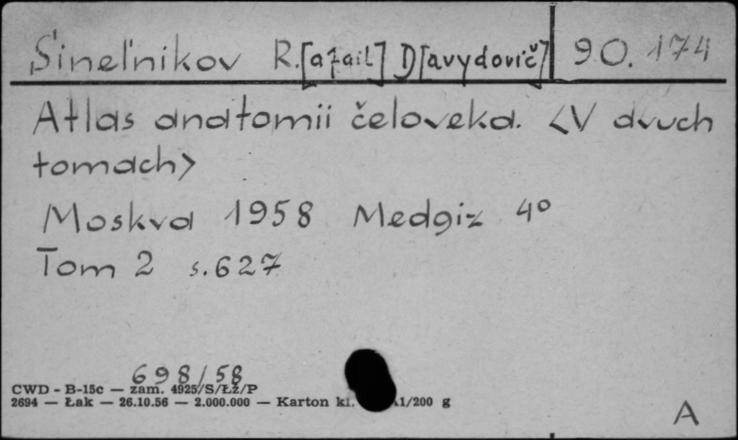 Sinel'nikov R.[afail] D[avydovič] 90.174
Atlas anatomii čeloveka. <V dvuch
tomach>
Moskva 1958 Medgiz 4°
Tom 2 s.627
698/58
CWD - B-15c — zam. 4925/S/ŁŻ/P
2694 — Łak — 26.10.56 — 2.000.000 — Karton kl. 1/200 g
A